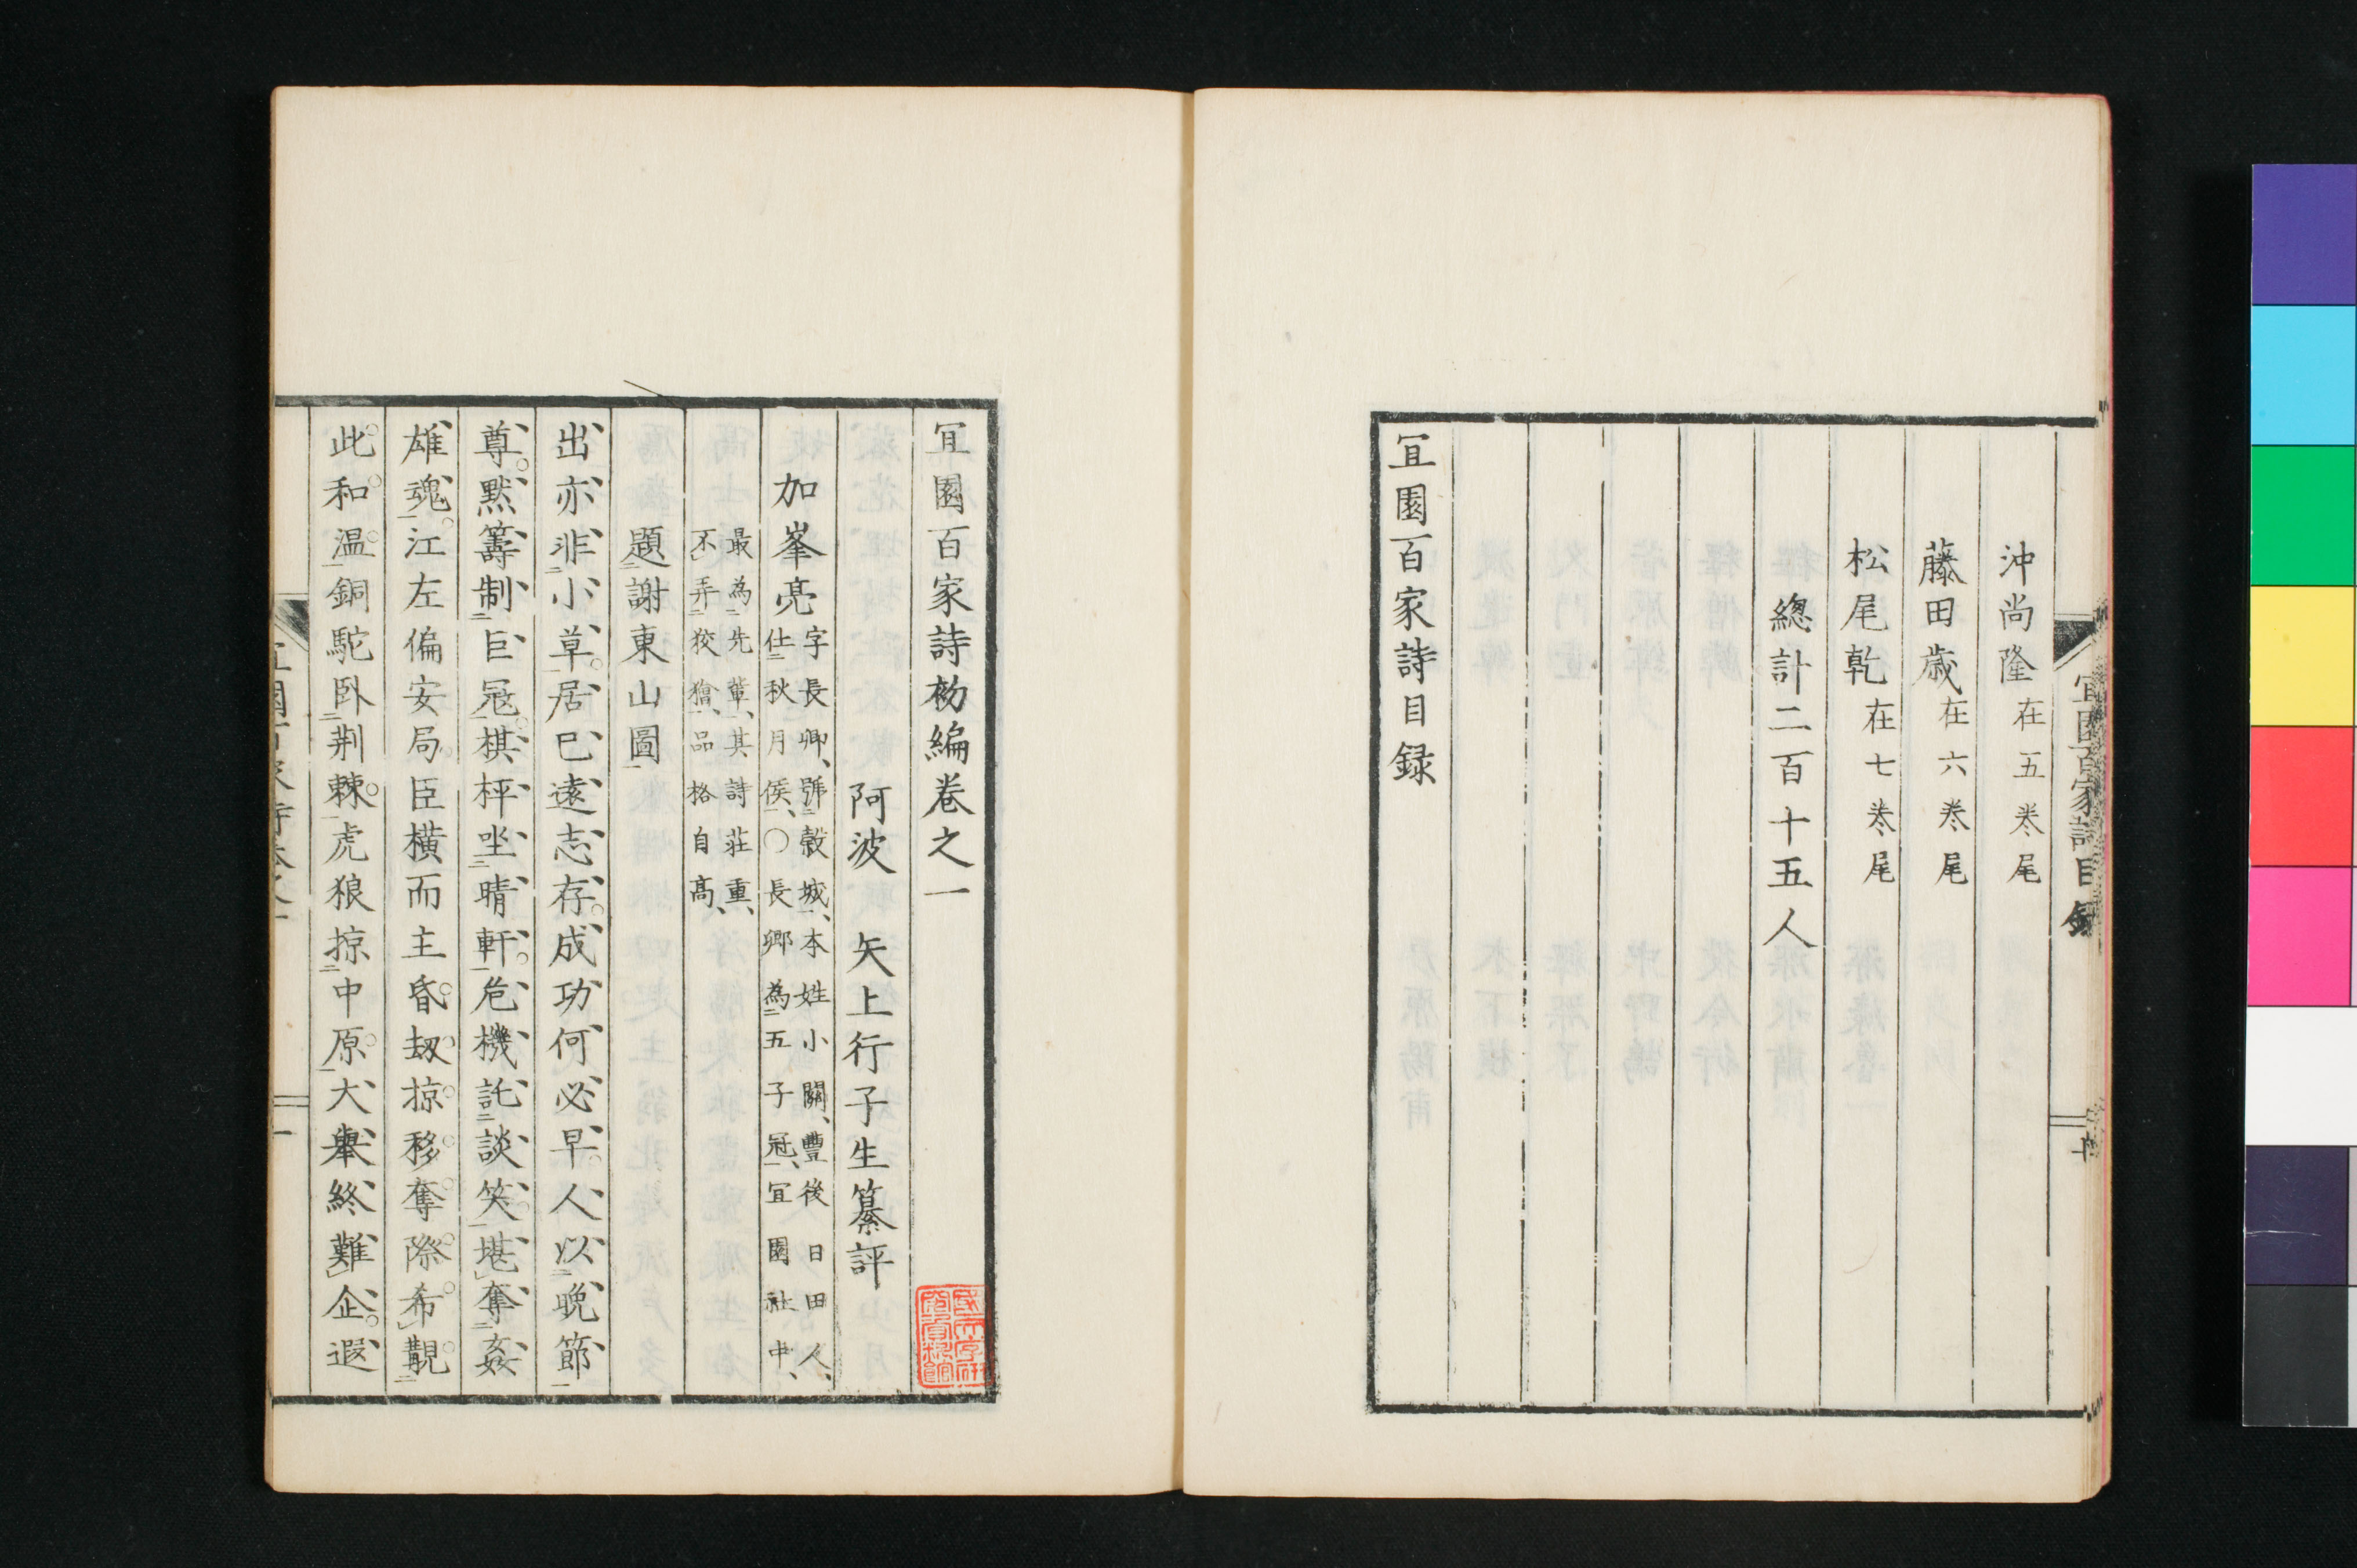 宜園百家詩目録
沖尚隆在五巻尾
藤田歳在六巻尾
松尾乾在七巻尾
總計二百十五人
宜園百家詩目録
宜園百家詩初編卷之一
阿波　矢上行子生纂評
加峯亮
字長卿、號二穀城一、本姓小關、豐後日田人、
仕二秋月侯一、〇長卿為二五子冠一、宜園社中、
最為二先輩一、其詩莊重、
不レ弄二狡獪一、品格自高、
題二謝東山圖一
出亦非二小草一居已遠志存成功何必早人以二晩節一
尊默籌制二巨冦一棋枰坐二晴軒一危機託二談笑一堪レ奪二姦
雄魂一江左偏安局臣橫而主昏刼掠移奪際希レ覯二
此和温一銅駝卧二荆棘一虎狼掠二中原一大舉終難レ企遐